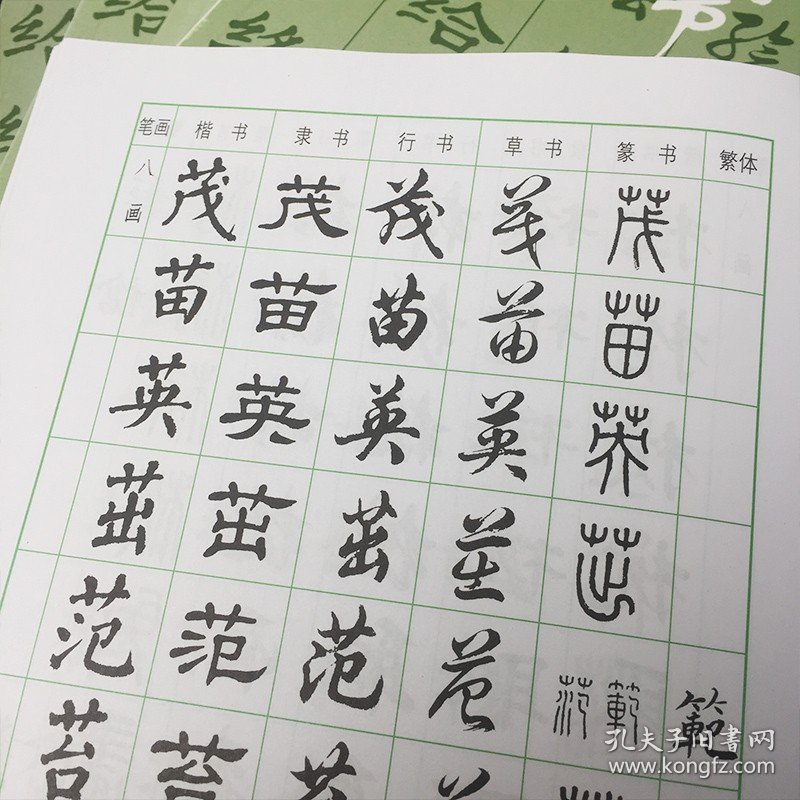 给 给 给
给
笔画 楷书 隶书 行书 草书 篆书 繁体
八画 茂 茂 茂 茂 茂
苗 苗 苗 苗 苗
英 英 英 英 英
茁 茁 茁 茁 茁
范 范 范 范 范 範 範
苔 苔
孔夫子旧書网
www.kongfz.com